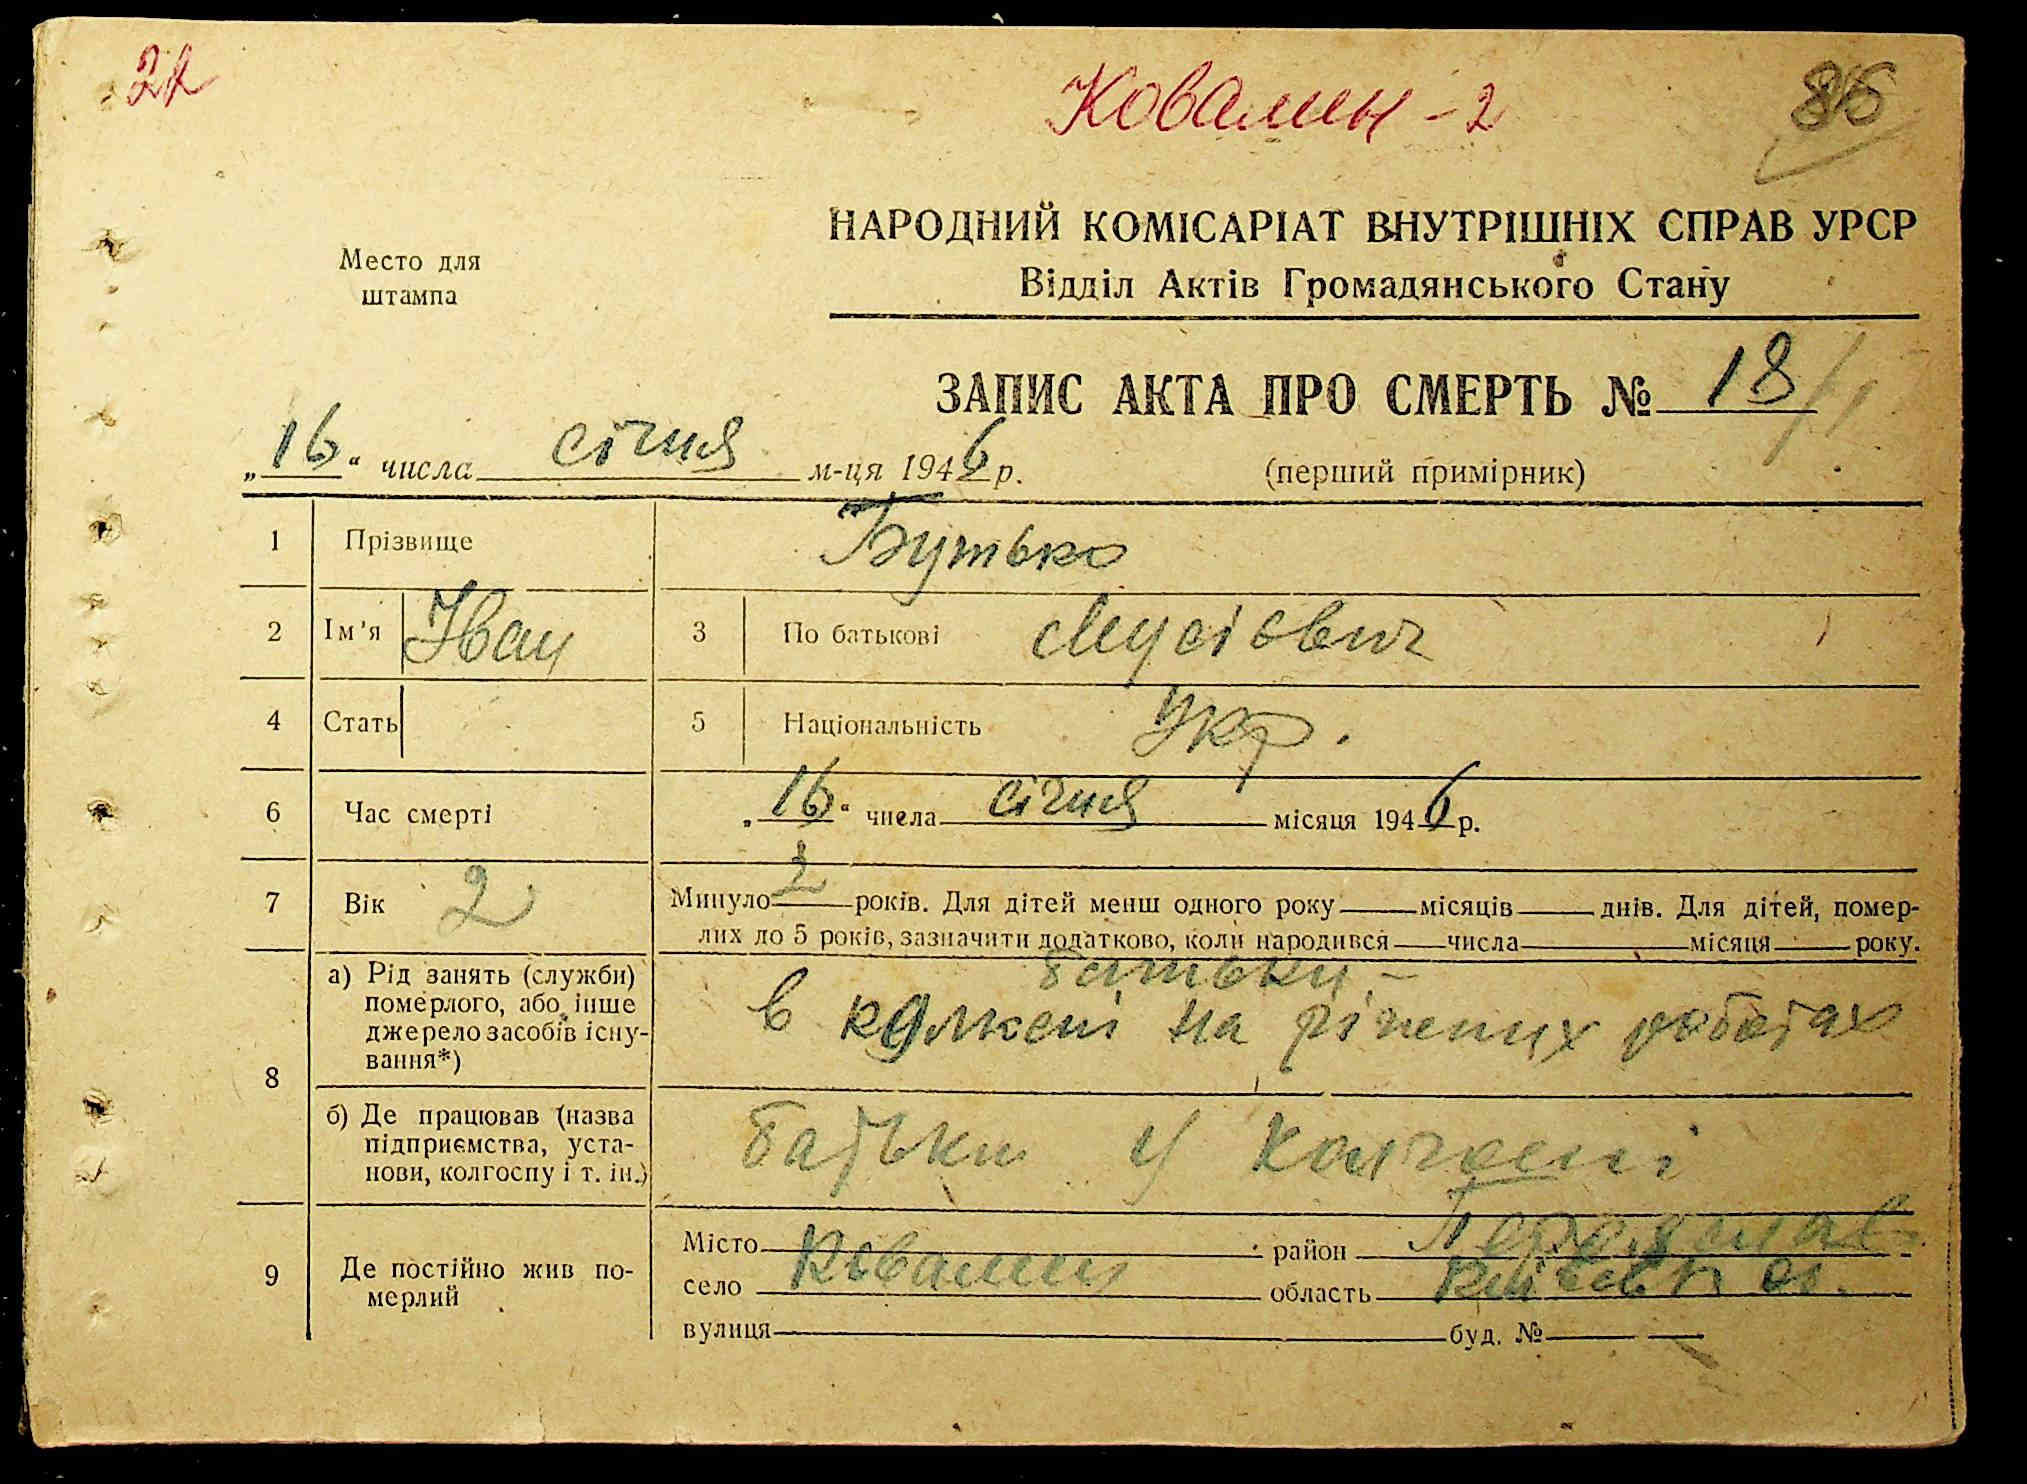 22
Ковалин - 2
86
НАРОДНИЙ КОМІСАРІАТ ВНУТРІШНІХ СПРАВ УРСР
Відділ Актів Громадянського Стану
Место для
штампа
ЗАПИС АКТА ПРО СМЕРТЬ № 18
„16“ числа січня м-ця 1946 р.
(перший примірник)
1 Прізвище Бутько
2 Ім'я Іван 3 По батькові Мусієвич
4 Стать 5 Національність Укр.
6 Час смерті „16“ числа січня місяця 1946 р.
7 Вік 2 Минуло 2 років. Для дітей менш одного року місяців днів. Для дітей, помер-
лих до 5 років, зазначити додатково, коли народився числа місяця року.
8 а) Рід занять (служби)
померлого, або інше
джерело засобів існу-
вання*)
батьки -
в на різних роботах
б) Де працював (назва
підприємства, уста-
нови, колгоспу і т. ін.)
батьки у колгоспі
9 Де постійно жив по-
мерлий
Місто район Переяслав
село Ковалин область Київськ
вулиця буд. №